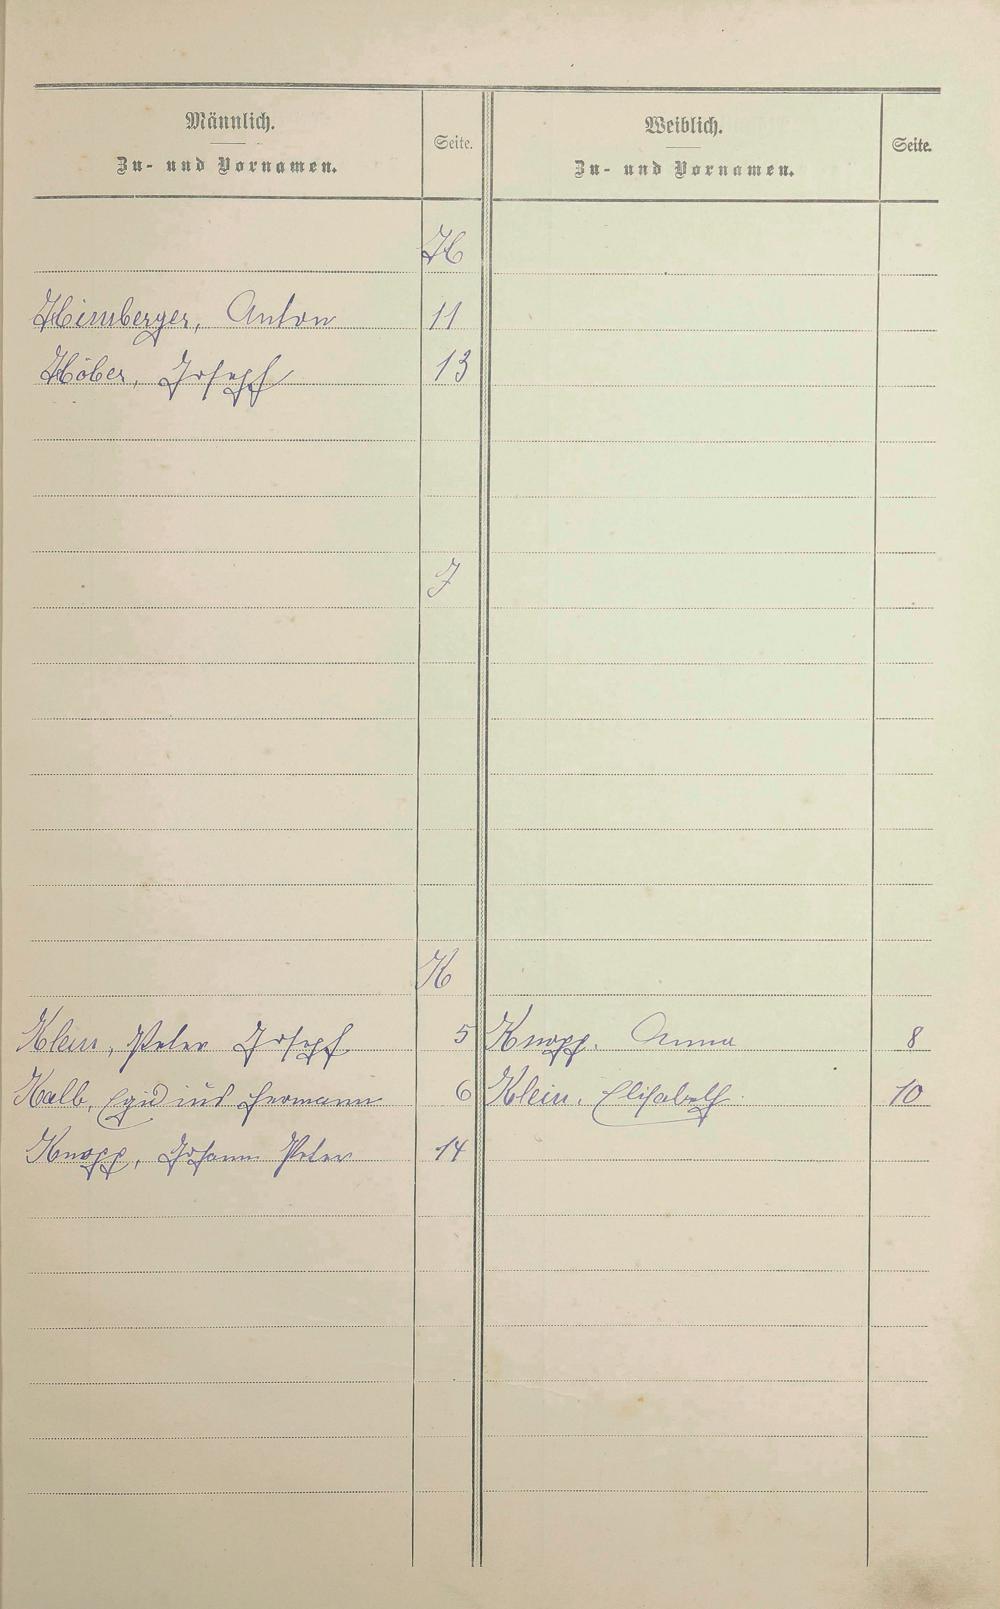 Männlich.
Zu- und Vornamen.
Seite.
Weiblich.
Zu- und Vornamen.
Seite.
H
Himberger, Anton 11
Höber, Joseph 13
J
K
Klein, Peter Joseph 5 Knopp. Anna 8
Kalb, Egidius Hermann 6 Klein. Elisabeth 10
Knopp, Johann Peter 14